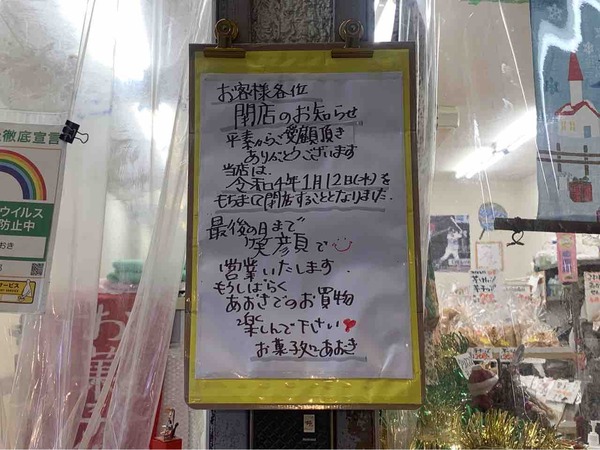 お客様各位
閉店のお知らせ
平素からご愛顧頂き
ありがとうございます
当店は、
令和4年1月12日(水)を
もちまして閉店することとなりました。
最後の日まで
笑顔で
営業いたします
もうしばらく
あおきでのお買物
楽しんで下さい
お菓子処 あおき
徹底宣言
ウイルス
防止中
おき
お菓